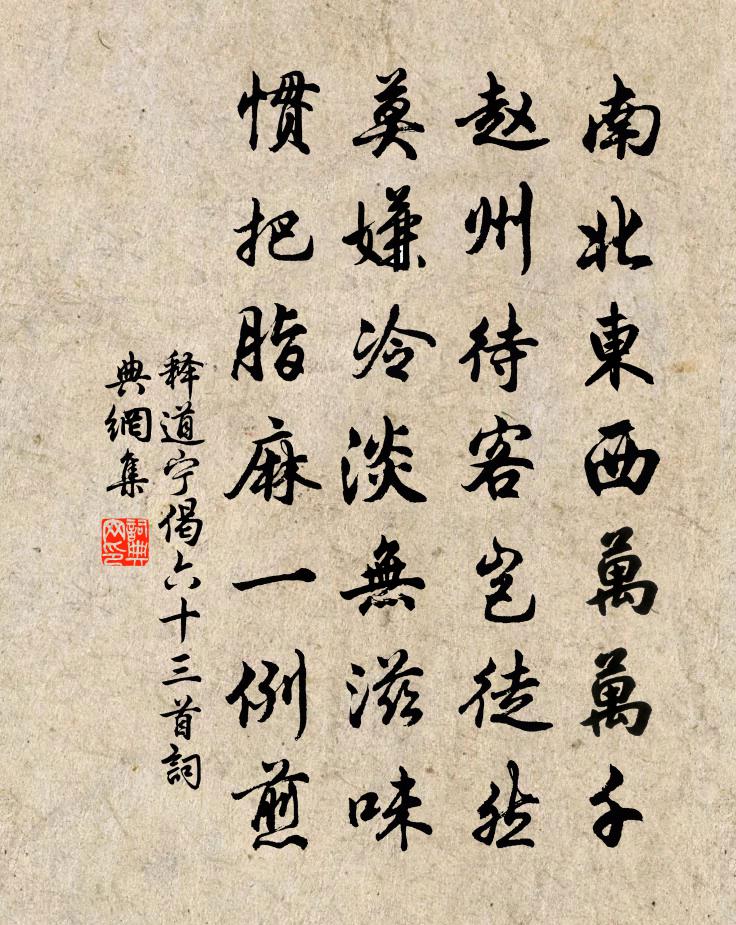 南北東西萬萬千
赵州待客岂徒然
莫嫌冷淡無滋味
慣把脂麻一例煎
释道宁偈六十三首詞
典網集
詞典
网印